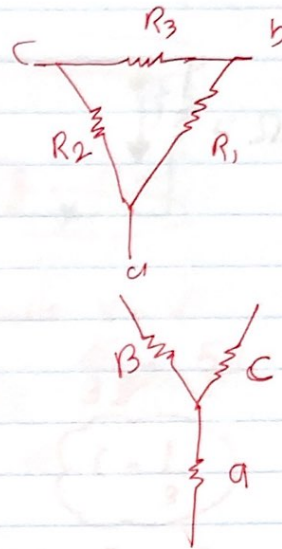 R3
C b
R2 R1
a
B C
a